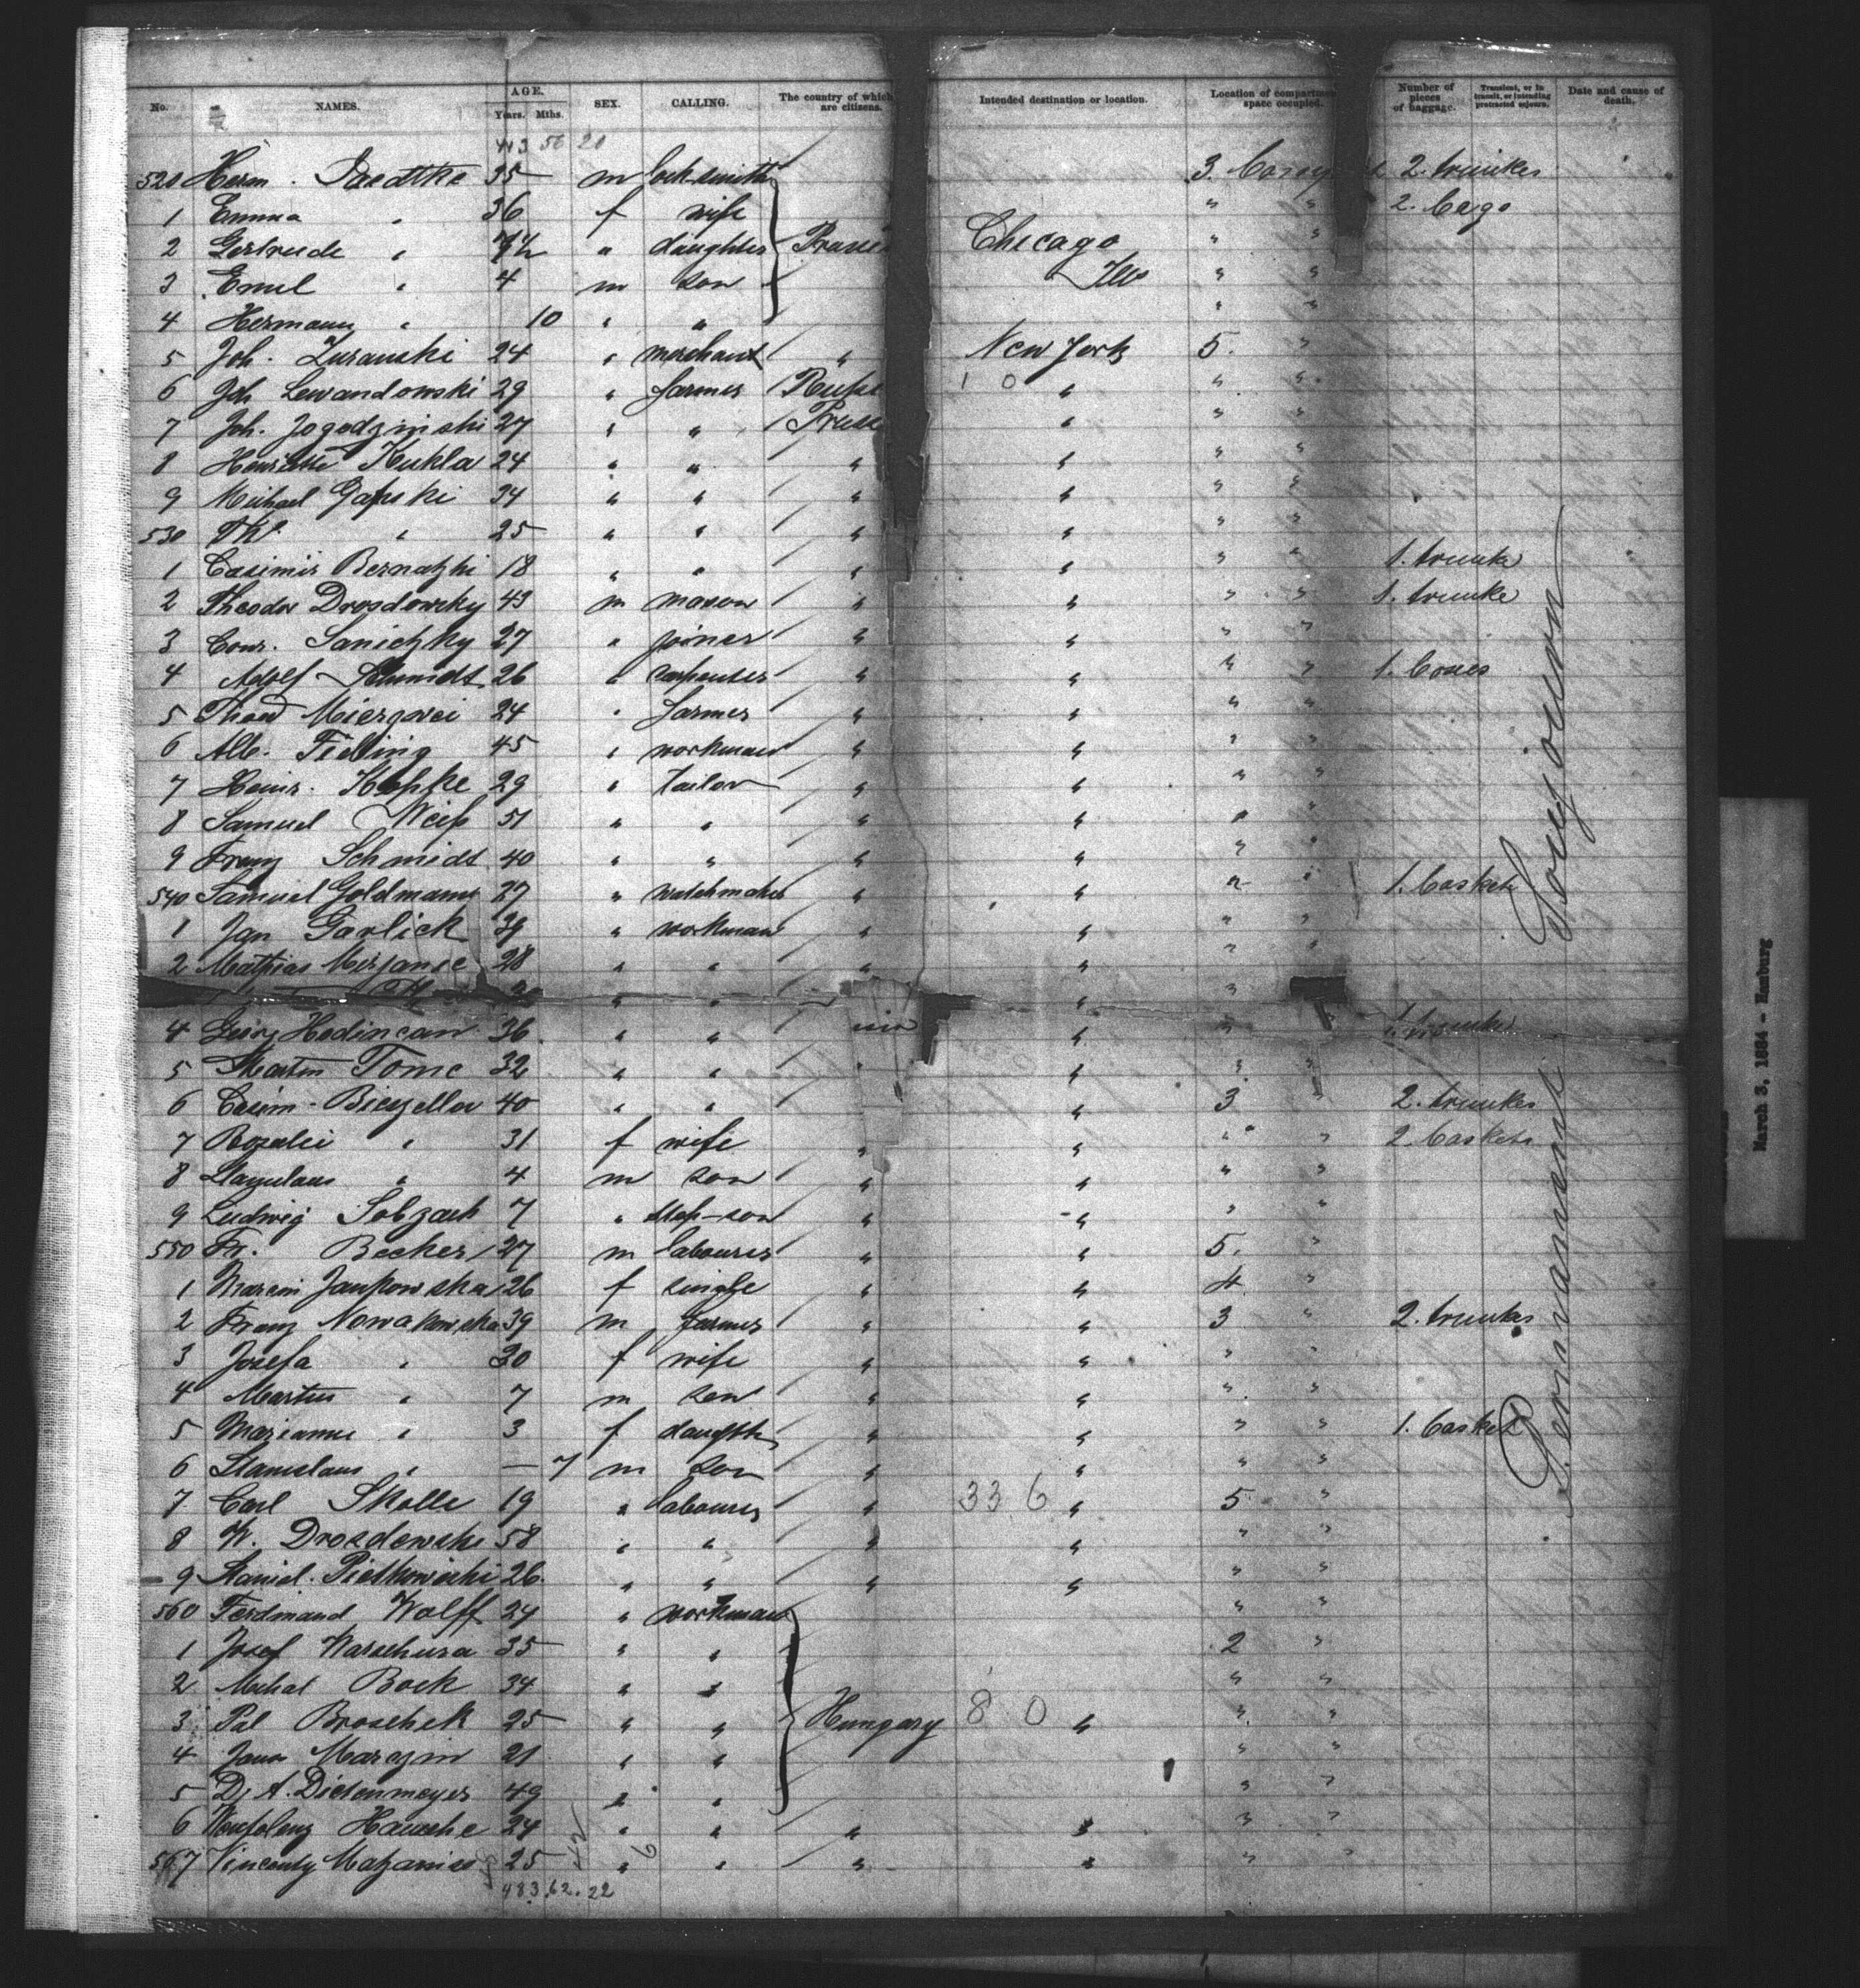 No. NAMES. AGE. Years. Mths. SEX. CALLING. The country of which are citizens. Intended destination or location. Location of compartmen space occupied. Number of pieces of baggage. Transient, or in transit, or intending protracted sojourn. Date and cause of death.
443 56 21
520 Herm. 35 m locksmith 3. 2. trunkes
1 Emma " 36 f wife " " 2. bags
2 Gertrude " daughter Prussi Chicago " "
3 Emil " 4 m son Ills " "
4 Hermann " 10 " " " "
5 Joh. Zuranski 24 " merchant " New York 5. "
6 Joh Lewandowski 29 " farmer 1 0 " " "
7 Joh. Jogodzinski 27 " " Pruss " " "
8 Henriette Kukla 24 " " " " " "
9 Michael Gapski 34 " " " " " "
530 " 25 " " " " " "
1 Casimir Bernatzki 18 " " " " " " 1. trunke
2 Theodor Drosdowsky 43 m mason " " " " 1. trunke
3 Conr. Sanichky 27 " joiner " " " "
4 Adolf Schmidt 26 " carpenter " " " " 1.
5 24 " farmer " " " "
6 Alb. 45 " workman " " " "
7 Heinr. 29 " tailor " " " "
8 Samuel Weiß 51 " " " " " "
9 Franz Schmidt 40 " " " " " "
540 Samuel Goldmann 27 " watchmaker " " " " 1. basket
1 Jan Garlick 39 " workman " " " "
2 Mathias 28 " " " " "
" " " "
4 Georg Hodincan 36 " " " " 1. trunke
5 Martin Tomc 32 " " " " " "
6 Casim. 40 " " " 3 " 2. trunkes
7 Rozalie " 31 f wife " " " " 2 baskets
8 Stanislaus " 4 m son " " " "
9 Ludwig Sobzack 7 " step-son " " " "
550 Fr. Becker 27 m labourer " " 5. "
1 Jankowska 26 f single " " 4 "
2 Franz Nowakowska 39 m farmer " " 3 " 2. trunkes
3 Josefa " 30 f wife " " " "
4 Martin " 7 m son " " " "
5 Marianne " 3 f daughter " " " " 1. basket
6 Stanislaus " — 7 m son " " " "
7 Carl Skolle 19 " labourer " 33 6 " 5 "
8 W. Drozdewski 58 " " " " " "
9 Daniel. Pietkowski 26. " " " " " "
560 Ferdinand Wolff 24 " workman " "
1 Josef Warschura 35 " " 2 "
2 Michal Bock 34 " " " "
3 Pal Broschek 25 " " Hungary 8 0 " " "
4 Janos Marczin 21 " " " "
5 Dietenmeyer 49 " " " "
6 24 " " " " " "
567 25 " " " " " "
483.62.22
Sonjourn
Permanent
March 3, 1884 - Hamburg